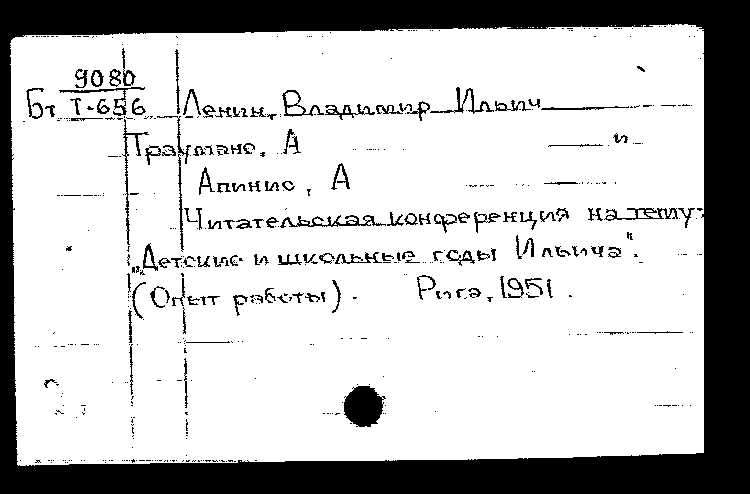 9080
Бт Т-656 Ленин, Владимир Ильич
Траумане, А и
Апинис, А
Читательская конференция на тему:
"Детские и школьные годы Ильича".
(Опыт работы). Рига, 1951.